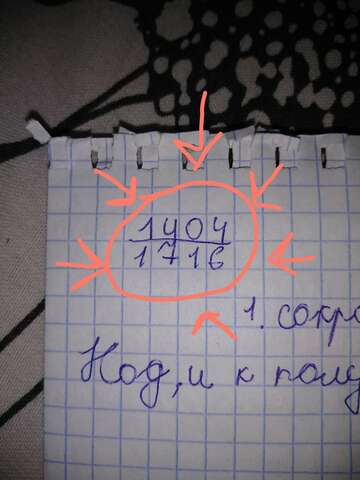 1404
1716
1. сокра
Нод, и к полу